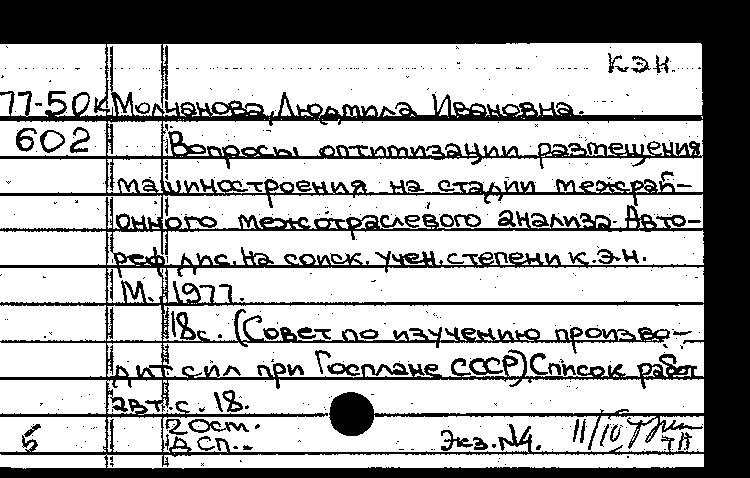 К.Э.Н.
77-50к Молчанова, Людмила Ивановна.
602 Вопросы оптимизации размещения
машиностроения на стадии межрай-
онного межотраслевого анализа. Авто-
реф. дис. на соиск. учен. степени к.э.н.
М., 1977.
18с. (Совет по изучению произво-
дит. сил при Госплане СССР) Список работ
авт. с. 18.
20ст.
5 ДСП. Экз. N4. 11/10